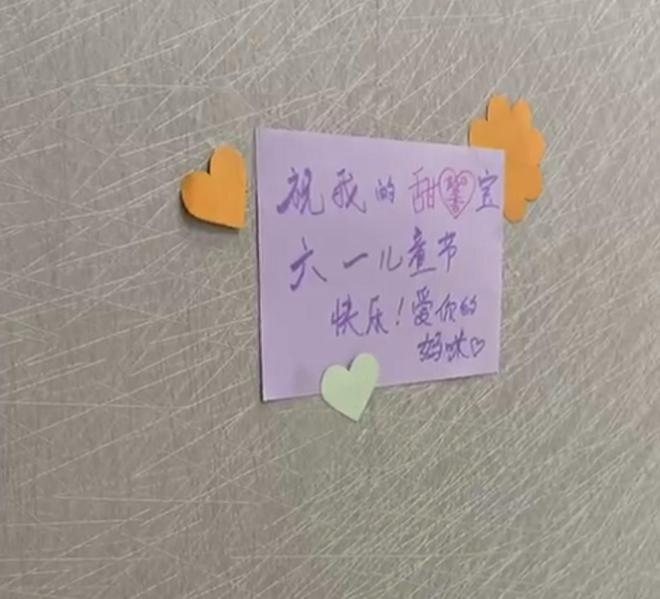 祝我的甜馨宝
六一儿童节
快乐！爱你的
妈咪♡